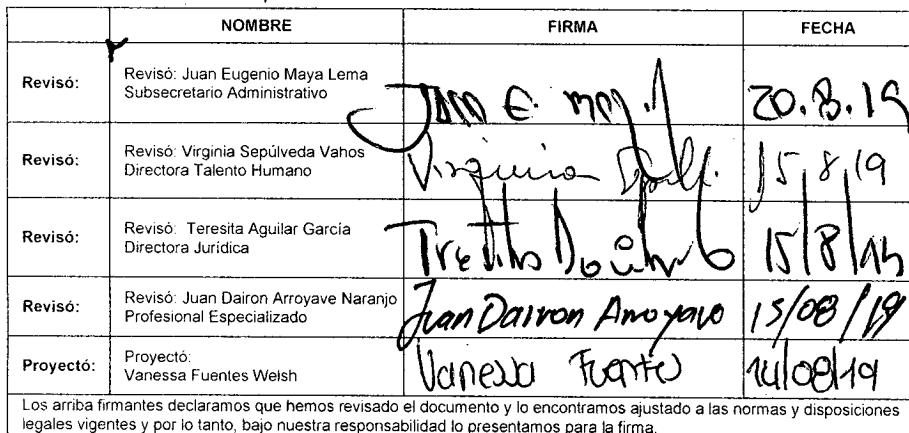 NOMBRE FIRMA FECHA
Revisó: Revisó: Juan Eugenio Maya Lema
Subsecretario Administrativo
Juan E. 20.8.19
Revisó: Revisó: Virginia Sepúlveda Vahos
Directora Talento Humano
Virginia 15/8/19
Revisó: Revisó: Teresita Aguilar García
Directora Jurídica
15/8/19
Revisó: Revisó: Juan Dairon Arroyave Naranjo
Profesional Especializado
Juan Dairon Arroyave 15/08/19
Proyectó: Proyectó:
Vanessa Fuentes Welsh
Vanessa Fuentes 14/08/19
Los arriba firmantes declaramos que hemos revisado el documento y lo encontramos ajustado a las normas y disposiciones
legales vigentes y por lo tanto, bajo nuestra responsabilidad lo presentamos para la firma.